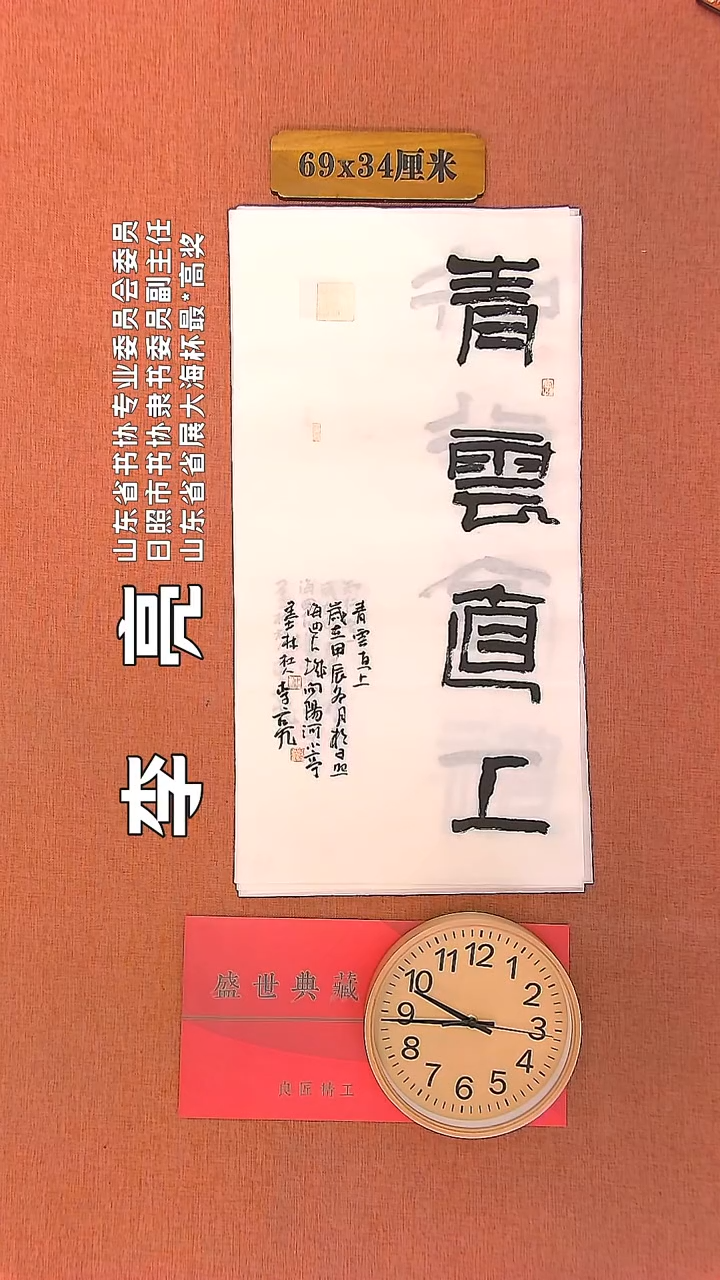 69x34厘米
青雲直上
青雲直上
歲在甲辰冬月於日照
海四占城向陽河小亭
墨林
李亮
山东省书协专业委员会委员
日照市书协隶书委员副主任
山东省省展大海杯最*高奖
李 亮
盛世典藏
良匠精工
12
1
2
3
4
5
6
7
8
9
10
11